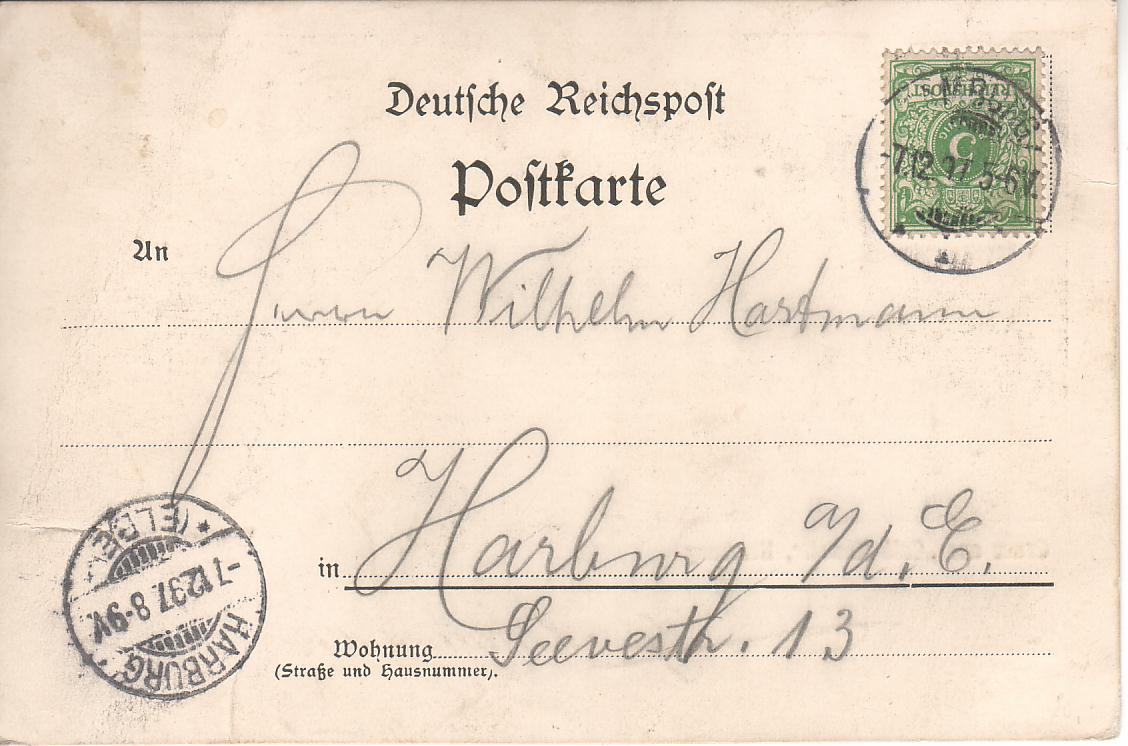 Deutsche Reichspost
Postkarte
REICHSPOST
5
-7.12.97 5-6V.
An
Herrn Wilhelm Hartmann
in Harburg a/d. E.
Wohnung Seevestr. 13
(Straße und Hausnummer).
HARBURG (ELBE) *
-7.12.97. 8-9V.